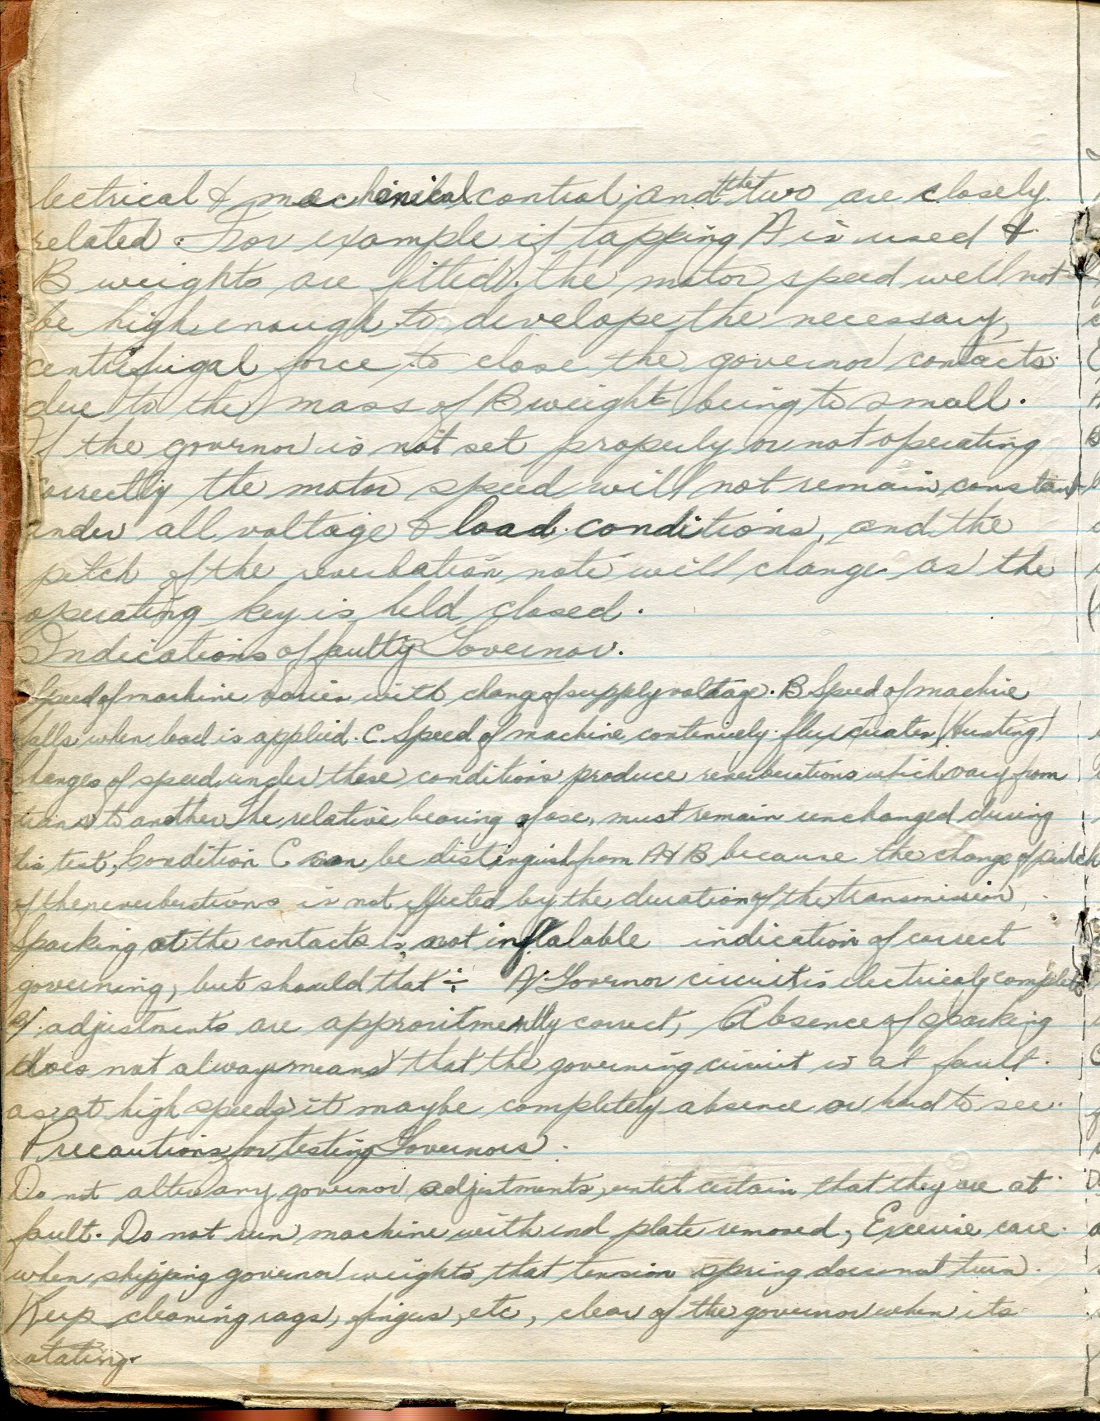 lectrical & machinical control, and the two are closely
related. For example if tapping A is used &
B weights are fitted, the motor speed well not
be high enough to develope the necessary
centrifugal force to close the governor contacts
due to the mass of B weight being to small.
If the governor is not set properly or not operating
correctly the motor speed will not remain constant
under all voltage & load conditions, and the
pitch of the reverbation note will change as the
operating key is held closed.
Indications of faulty Governor.
Speed of machine varies with change of supply voltage. B Speed of machine
falls when load is applied. C. Speed of machine continuely fluxcuates (Hunting)
changes of speed under these conditions produce reverberations which vary from
to another The relative bearing of ase, must remain unchanged during
this test, Condition C can be distinguish from A & B because the change of pitch
of the reverberations is not effected by the duration of the transmission,
Sparking at the contacts is not inflalable indication of correct
governing, but should that ÷ A/. Governor circuit is electricaly complete
B/. adjustments are approxitmently correct, Absence of sparking
does not always means that the governing circuit is at fault.
as at high speeds it maybe completely absence or hard to see.
Precautions for testing Governors.
Do not alter any governor adjustments, until certain that they are at
fault. Do not run machine with end plate removed, Excerise care
when shipping governor weights, that tension spring does not turn.
Keep cleaning rags, fingers, etc, clear of the governor when its
rotating.